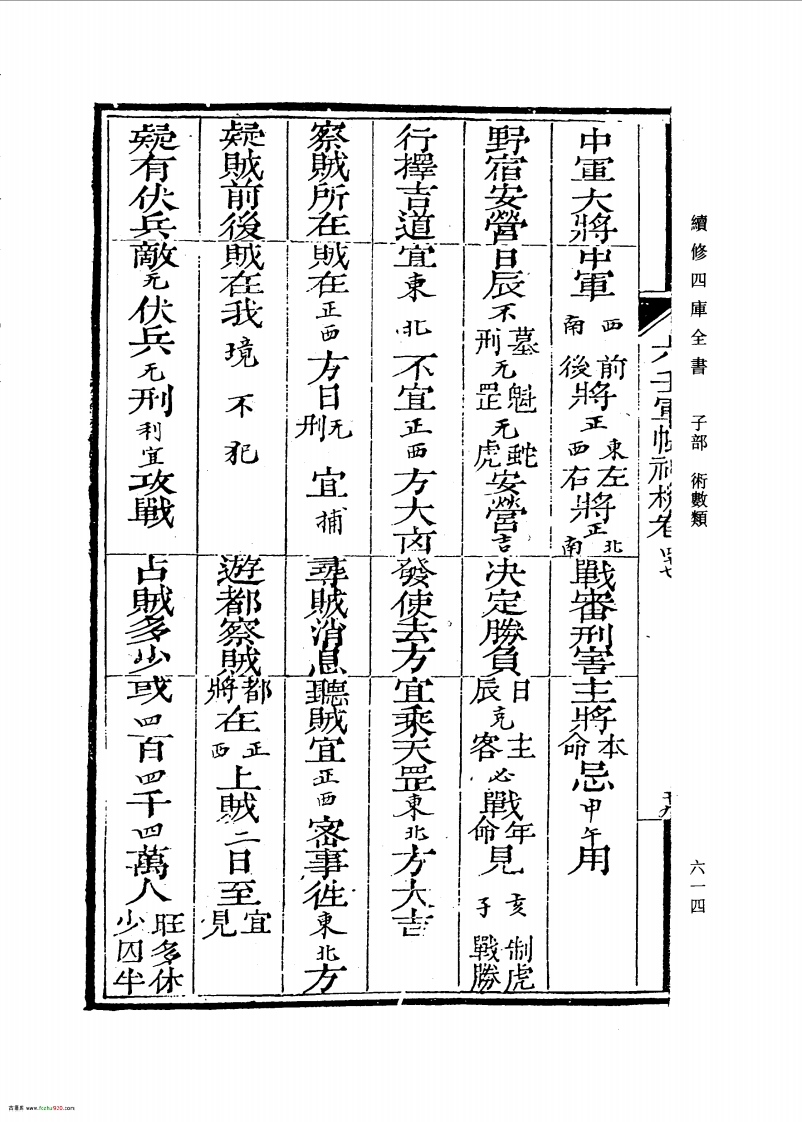 續修四庫全書　子部　術數類
六一四
六壬軍帳神機卷四十七
十九
中軍大將中軍西南前後將正東西左右將正北南戰審刑害主將本命忌甲午用
野宿安營日辰不墓刑无魁罡无蛇虎安營吉決定勝負日辰克主客必戰年命見亥子制虎戰勝
行擇吉道宜東北不宜正西方大凶發使去方宜乘天罡東北方大吉
察賊所在賊在正西方日无刑宜捕尋賊消息聽賊宜正西密事徃東北方
疑賊前後賊在我境不犯遊都察賊都將在正西上賊二日至宜見
疑有伏兵敵无伏兵无刑利宜攻戰占賊多少或四百四千四萬人旺多休少囚半
古易库 www.fozhu920.com